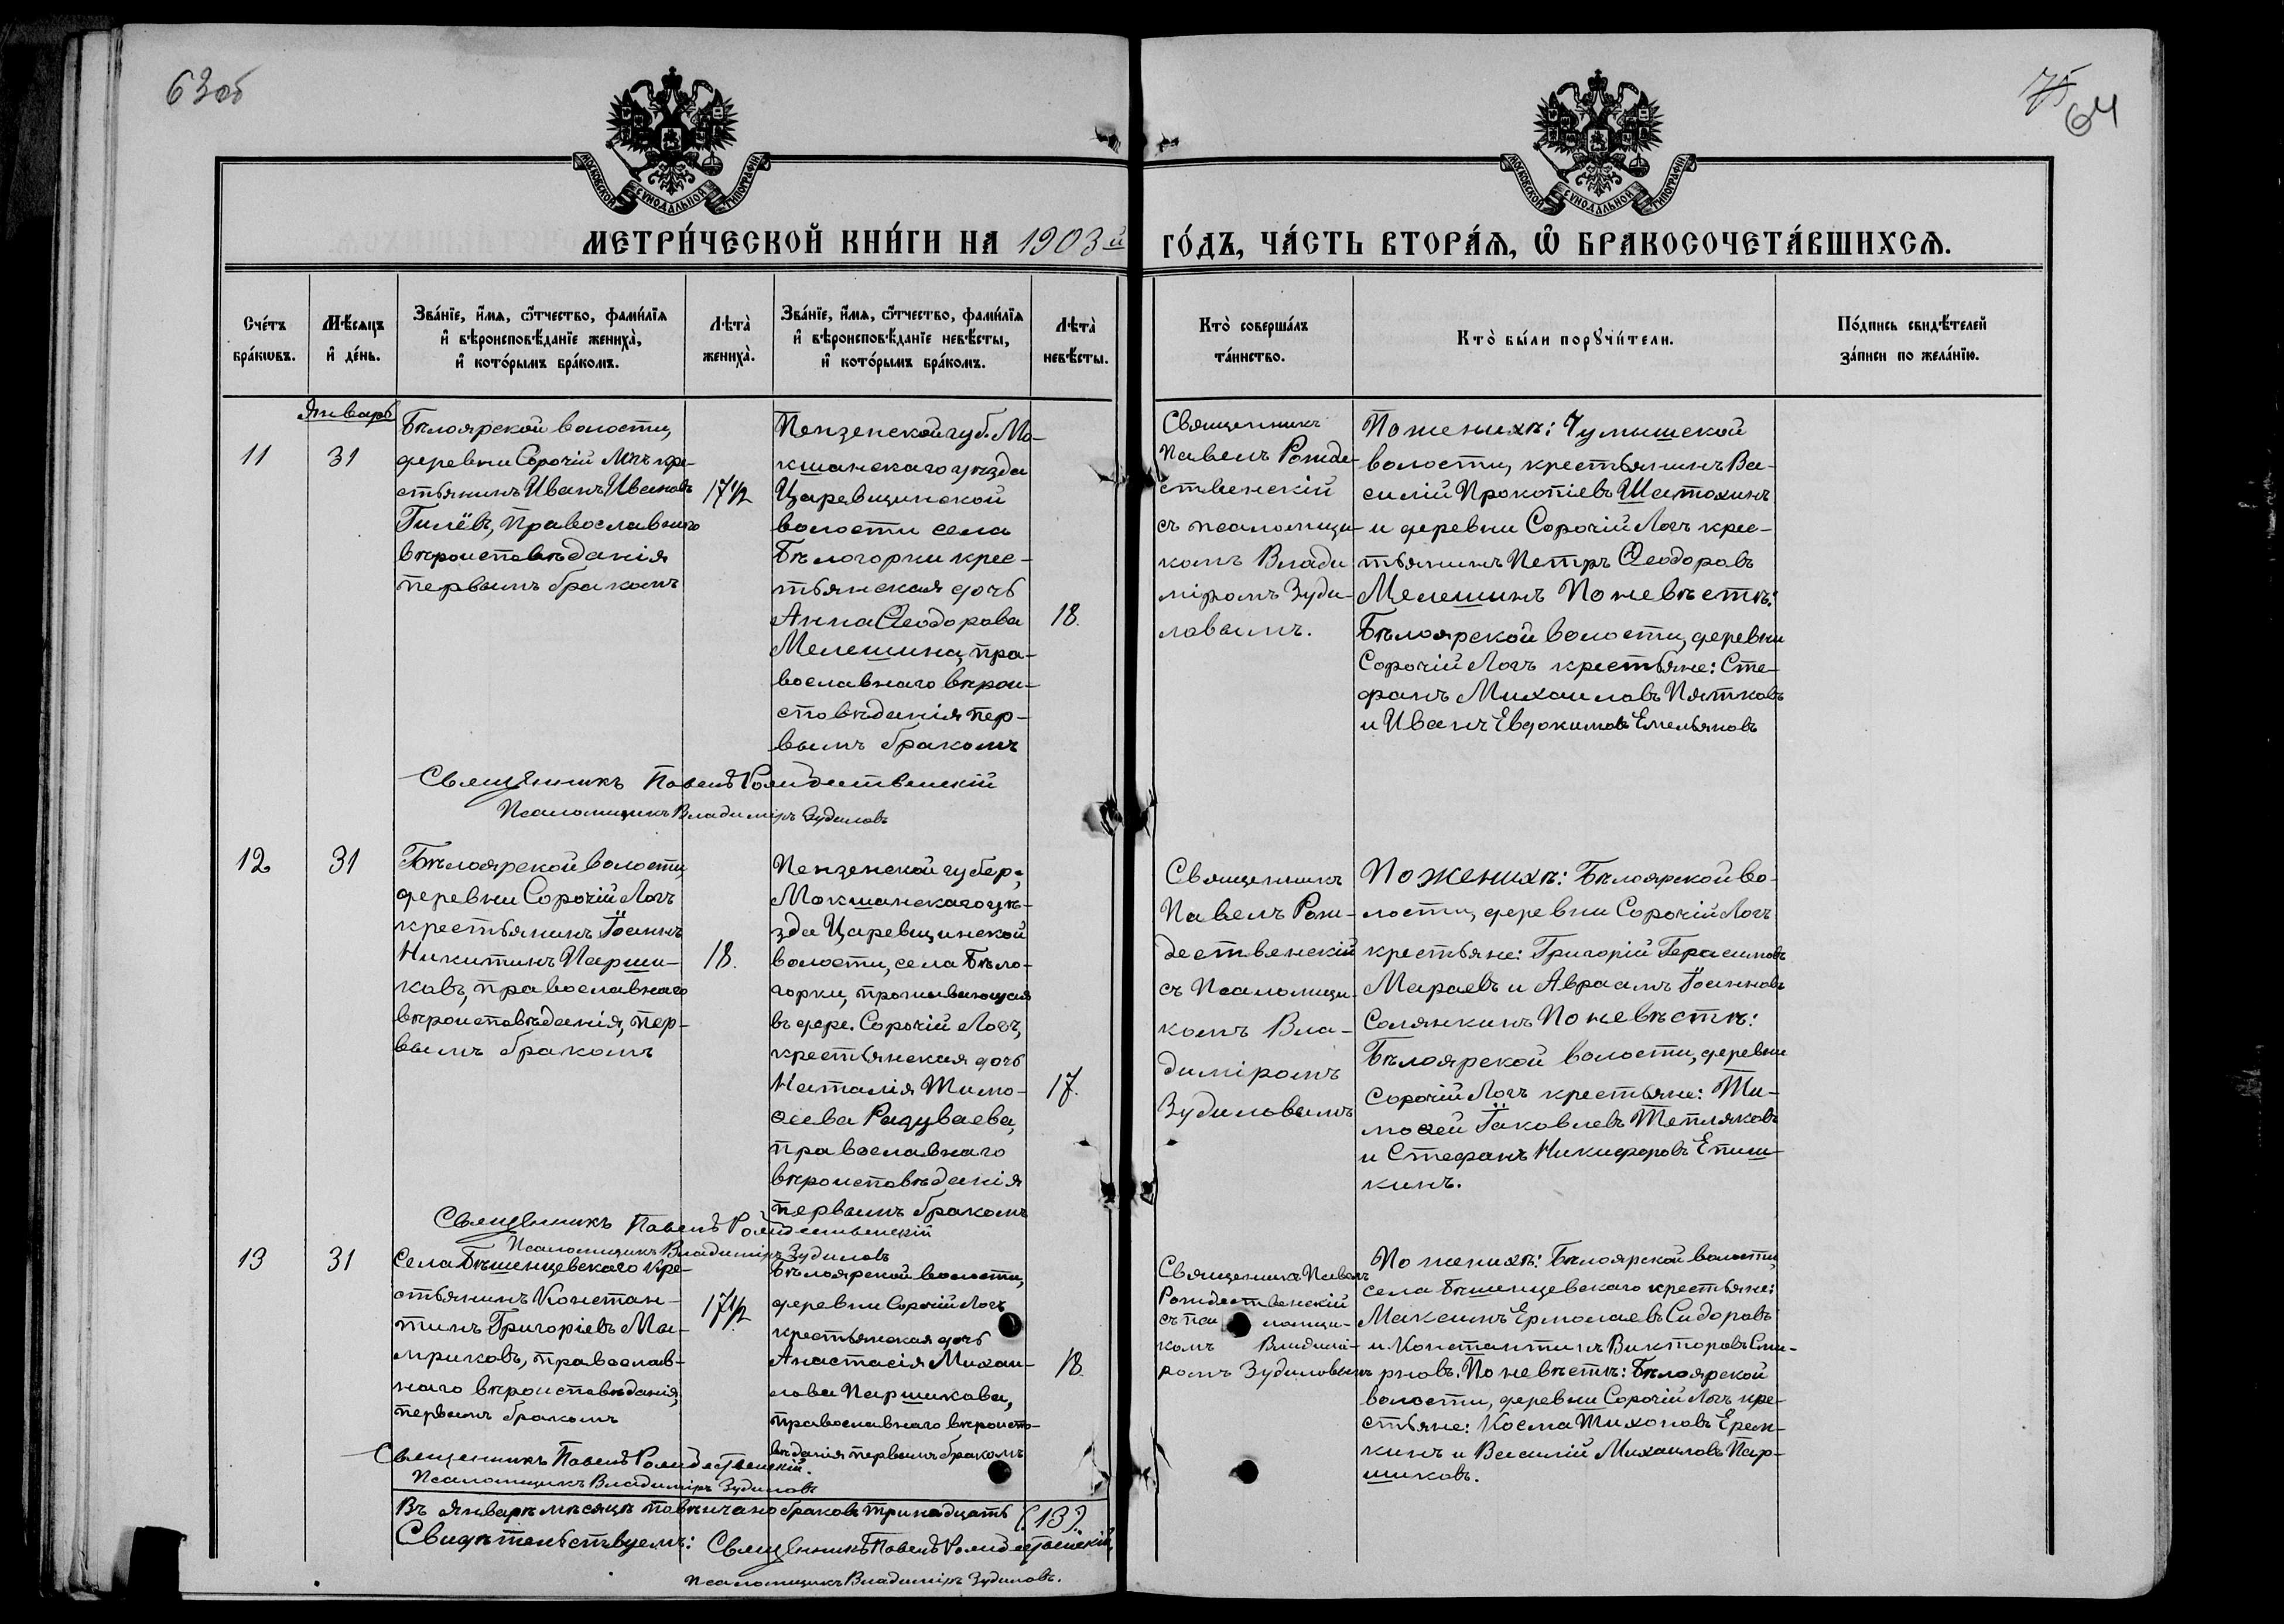 63об
75
64
МОСКОВСКОЙ СѴНОДАЛЬНОЙ ТИПОГРАФІИ
МОСКОВСКОЙ СѴНОДАЛЬНОЙ ТИПОГРАФІИ
МЕТРИ́ЧЕСКОЙ КНИ́ГИ НА 1903й ГО́ДЪ, ЧА́СТЬ ВТОРА́Ѧ, Ѽ БРАКОСОЧЕТА́ВШИХСѦ.
Сче́тъ
бра́кѡвъ.
Мѣ́сѧцъ
и҆ де́нь.
Зва́нїе, и҆́мѧ, ѻ҆́тчество, фами́лїѧ
и҆ вѣроисповѣ́данїе жениха̀,
и҆ кото́рымъ бра́комъ.
Лѣта̀
жениха̀.
Зва́нїе, и҆́мѧ, ѻ҆́тчество, фами́лїѧ
и҆ вѣроисповѣ́данїе невѣ́сты,
и҆ кото́рымъ бра́комъ.
Лѣта̀
невѣ́сты.
Кто̀ соверша́лъ
та́инство.
Кто̀ бы́ли порꙋчи́тели.
По́дпись свидѣ́телей
за́писи по жела́нїю.
Январь
11
31
Бѣлоярской волости,
деревни Сорочій Логъ кре-
стьянинъ Иванъ Ивановъ
Гилёвъ, православнаго
вѣроисповѣданія
первымъ бракомъ
17½
Пензенской губ. Мо-
кшанскаго уѣзда
Царевщинской
волости села
Бѣлогорки крес-
тьянская дочь
Анна Ѳеодорова
Мелешина, пра-
вославнаго вѣрои-
сповѣданія пер-
вымъ бракомъ
18.
Священникъ
Павелъ Рожде-
ственскій
съ псаломщи-
комъ Влади
міромъ Зуди-
ловымъ.
По женихѣ: Чумышской
волости, крестьянинъ Ва-
силій Прокопіевъ Шатохинъ
и деревни Сорочій Логъ крес-
тьянинъ Петръ Ѳеодоровъ
Мелешинъ По невѣстѣ:
Бѣлоярской волости, деревни
Сорочій Логъ крестьяне: Сте-
фанъ Михаиловъ Пятковъ
и Иванъ Евдокимовъ Емельяновъ
Священникъ Павелъ Рождественскій
Псаломщикъ Владиміръ Зудиловъ
12
31
Бѣлоярской волости,
деревни Сорочій Логъ
крестьянинъ Іоаннъ
Никитинъ Парши-
ковъ, православнаго
вѣроисповѣданія, пер-
вымъ бракомъ
18.
Пензенской губер.,
Мокшанскаго уѣ-
зда Царевщинской
волости, села Бѣло-
горки, проживающая
въ дере. Сорочій Логъ,
крестьянская дочь
Наталія Тимо-
ѳеева Радуваева,
православнаго
вѣроисповѣданія
первымъ бракомъ
17.
Священникъ
Павелъ Рож-
дественскій
съ Псаломщи-
комъ Вла-
диміромъ
Зудиловымъ
По женихѣ: Бѣлоярской во-
лости, деревни Сорочій Логъ
крестьяне: Григорій Герасимовъ
Мараевъ и Авраамъ Іоанновъ
Солянкинъ По невѣстѣ:
Бѣлоярской волости, деревни
Сорочій Логъ крестьяне: Ти-
моѳей Іаковлевъ Тепляковъ
и Стефанъ Никифоровъ Епиш-
кинъ.
Священникъ Павелъ Рождественскій
Псаломщикъ Владиміръ Зудиловъ
13
31
Села Бѣшенцевскаго кре-
стьянинъ Констан-
тинъ Григоріевъ Ма-
мриковъ, православ-
наго вѣроисповѣданія,
первымъ бракомъ
17½
Бѣлоярской волости,
деревни Сорочій Логъ
крестьянская дочь
Анастасія Михаи-
лова Паршикова,
православнаго вѣроиспо-
вѣданія первымъ бракомъ
18.
Священникъ Павелъ
Рождественскій
съ пса ломщи-
комъ Владимі-
ромъ Зудиловымъ
По женихѣ: Бѣлоярской волости,
села Бѣшенцевскаго крестьяне:
Максимъ Ермолаевъ Сидоровъ
и Константинъ Викторовъ Сми-
рновъ. По невѣстѣ: Бѣлоярской
волости, деревни Сорочій Логъ кре-
стьяне: Косма Тихоновъ Ерем-
кинъ и Василій Михаиловъ Пар-
шиковъ.
Священникъ Павелъ Рождественскій.
Псаломщикъ Владиміръ Зудиловъ
Въ Январѣ мѣсяцѣ повѣнчано браковъ тринадцать (13).
Свидѣтельствуемъ: Священникъ Павелъ Рождественскій,
Псаломщикъ Владиміръ Зудиловъ.